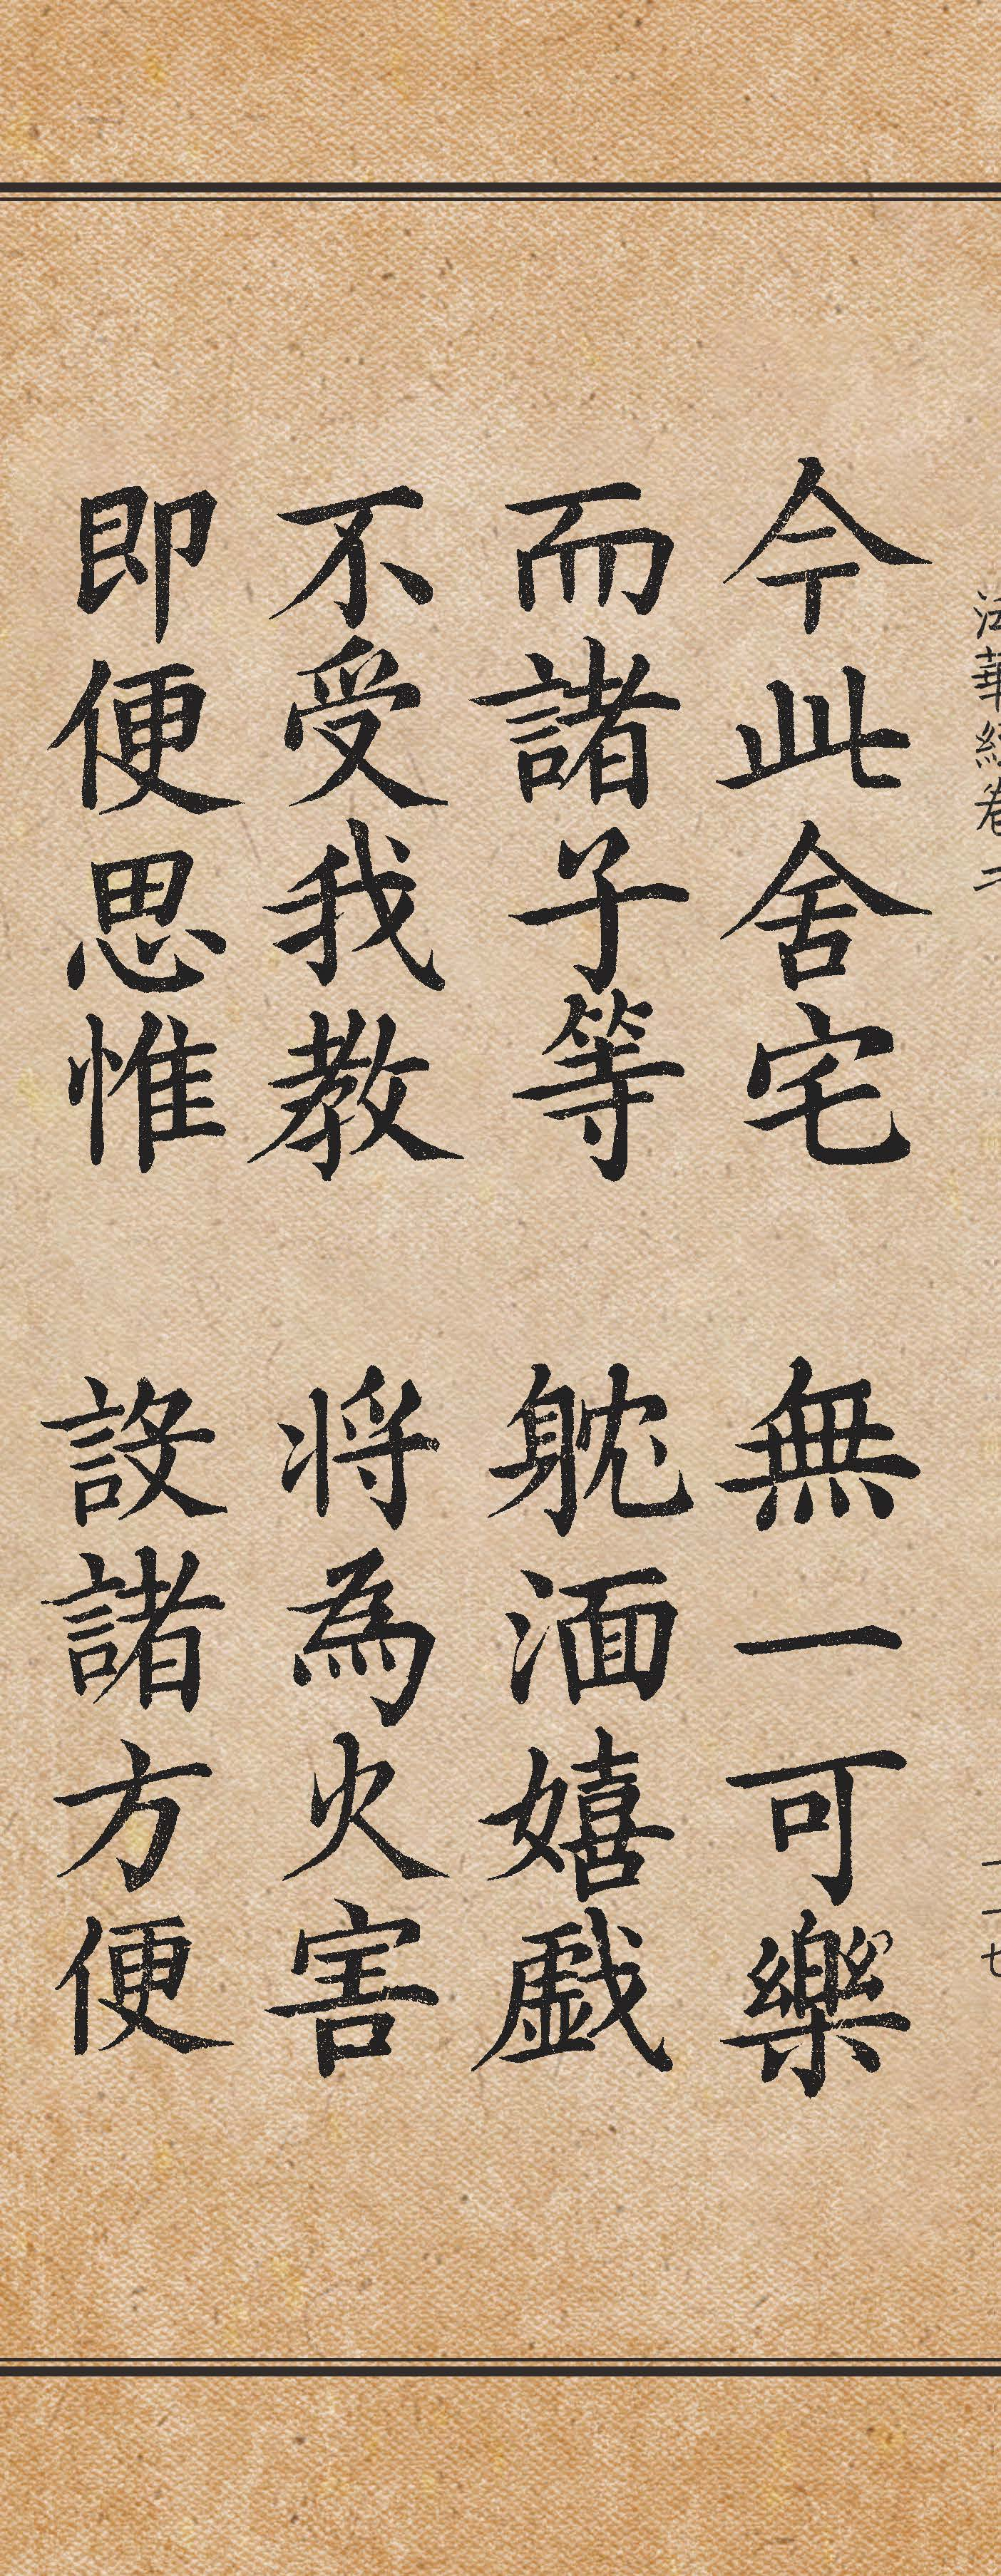 法華經卷二
二七
今此舍宅　無一可樂
而諸子等　躭湎嬉戲
不受我教　將為火害
即便思惟　設諸方便